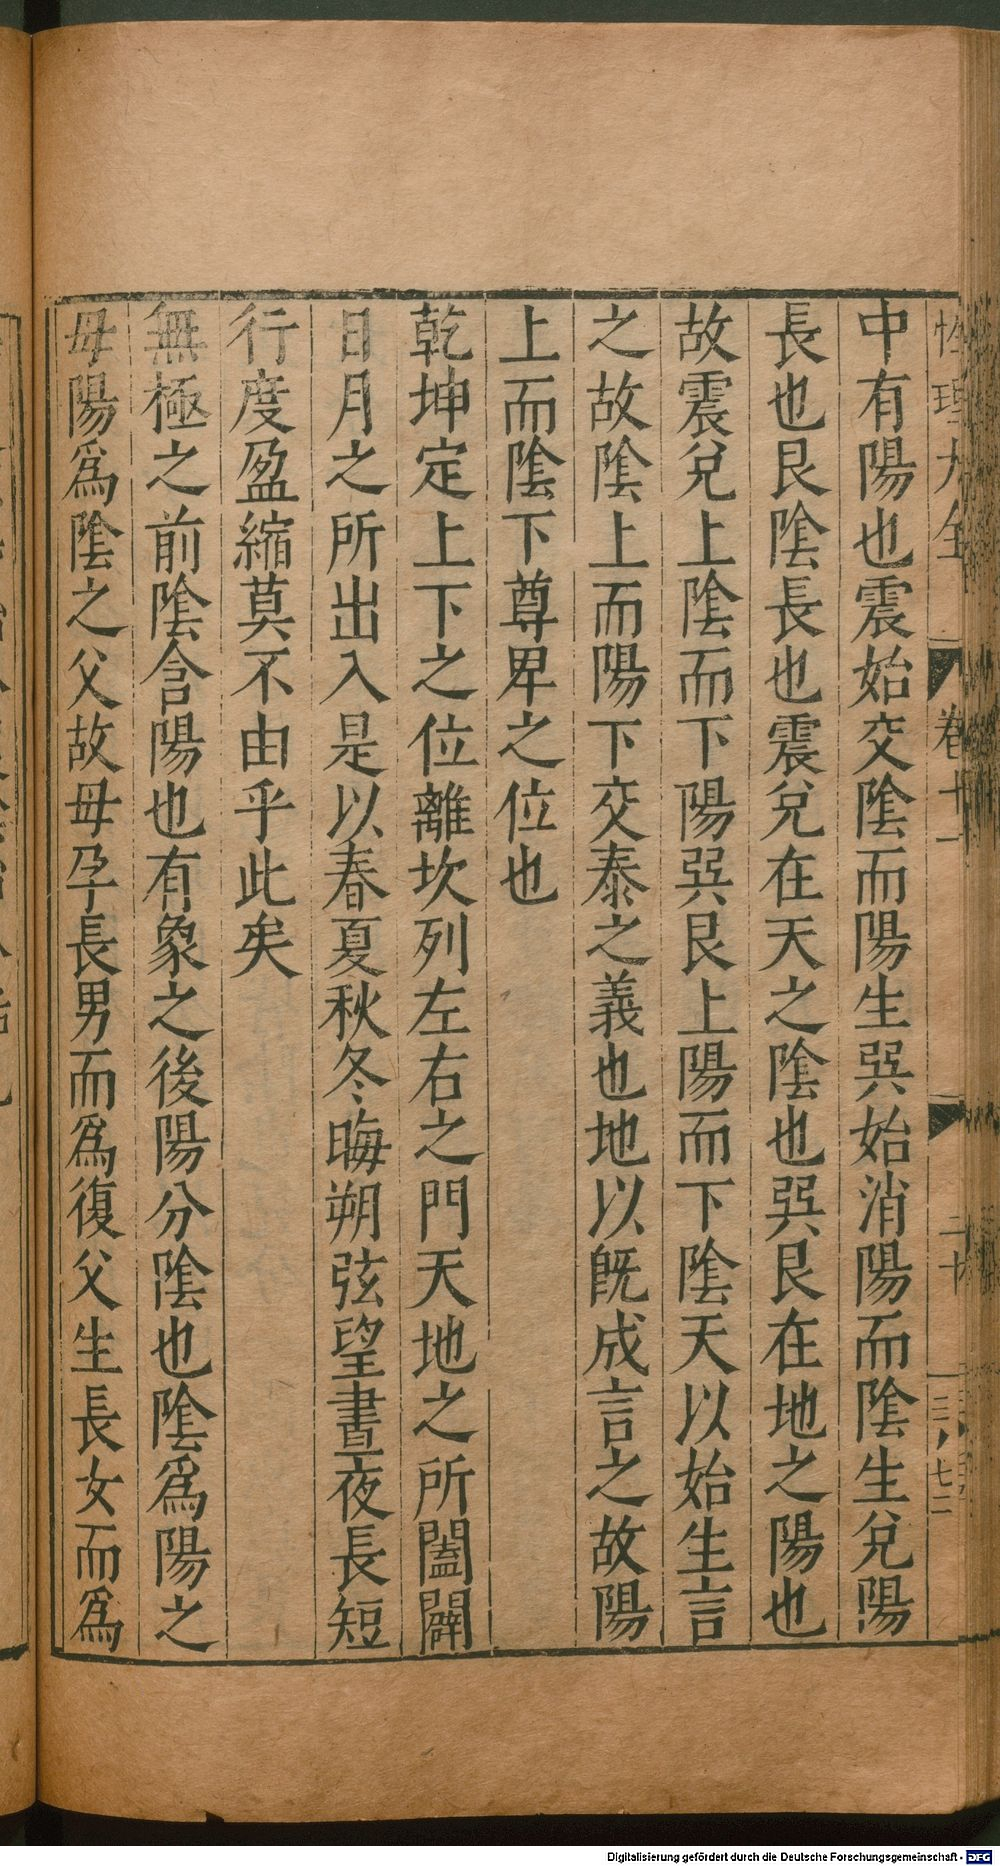 性理大全 卷十一 二十
中有陽也震始交陰而陽生巽始消陽而陰生兌陽
長也艮陰長也震兌在天之陰也巽艮在地之陽也
故震兌上陰而下陽巽艮上陽而下陰天以始生言
之故陰上而陽下交泰之義也地以旣成言之故陽
上而陰下尊卑之位也
乾坤定上下之位離坎列左右之門天地之所闔闢
日月之所出入是以春夏秋冬晦朔弦望晝夜長短
行度盈縮莫不由乎此矣
無極之前陰含陽也有象之後陽分陰也陰爲陽之
母陽爲陰之父故母孕長男而爲復父生長女而爲
Digitalisierung gefördert durch die Deutsche Forschungsgemeinschaft - DFG